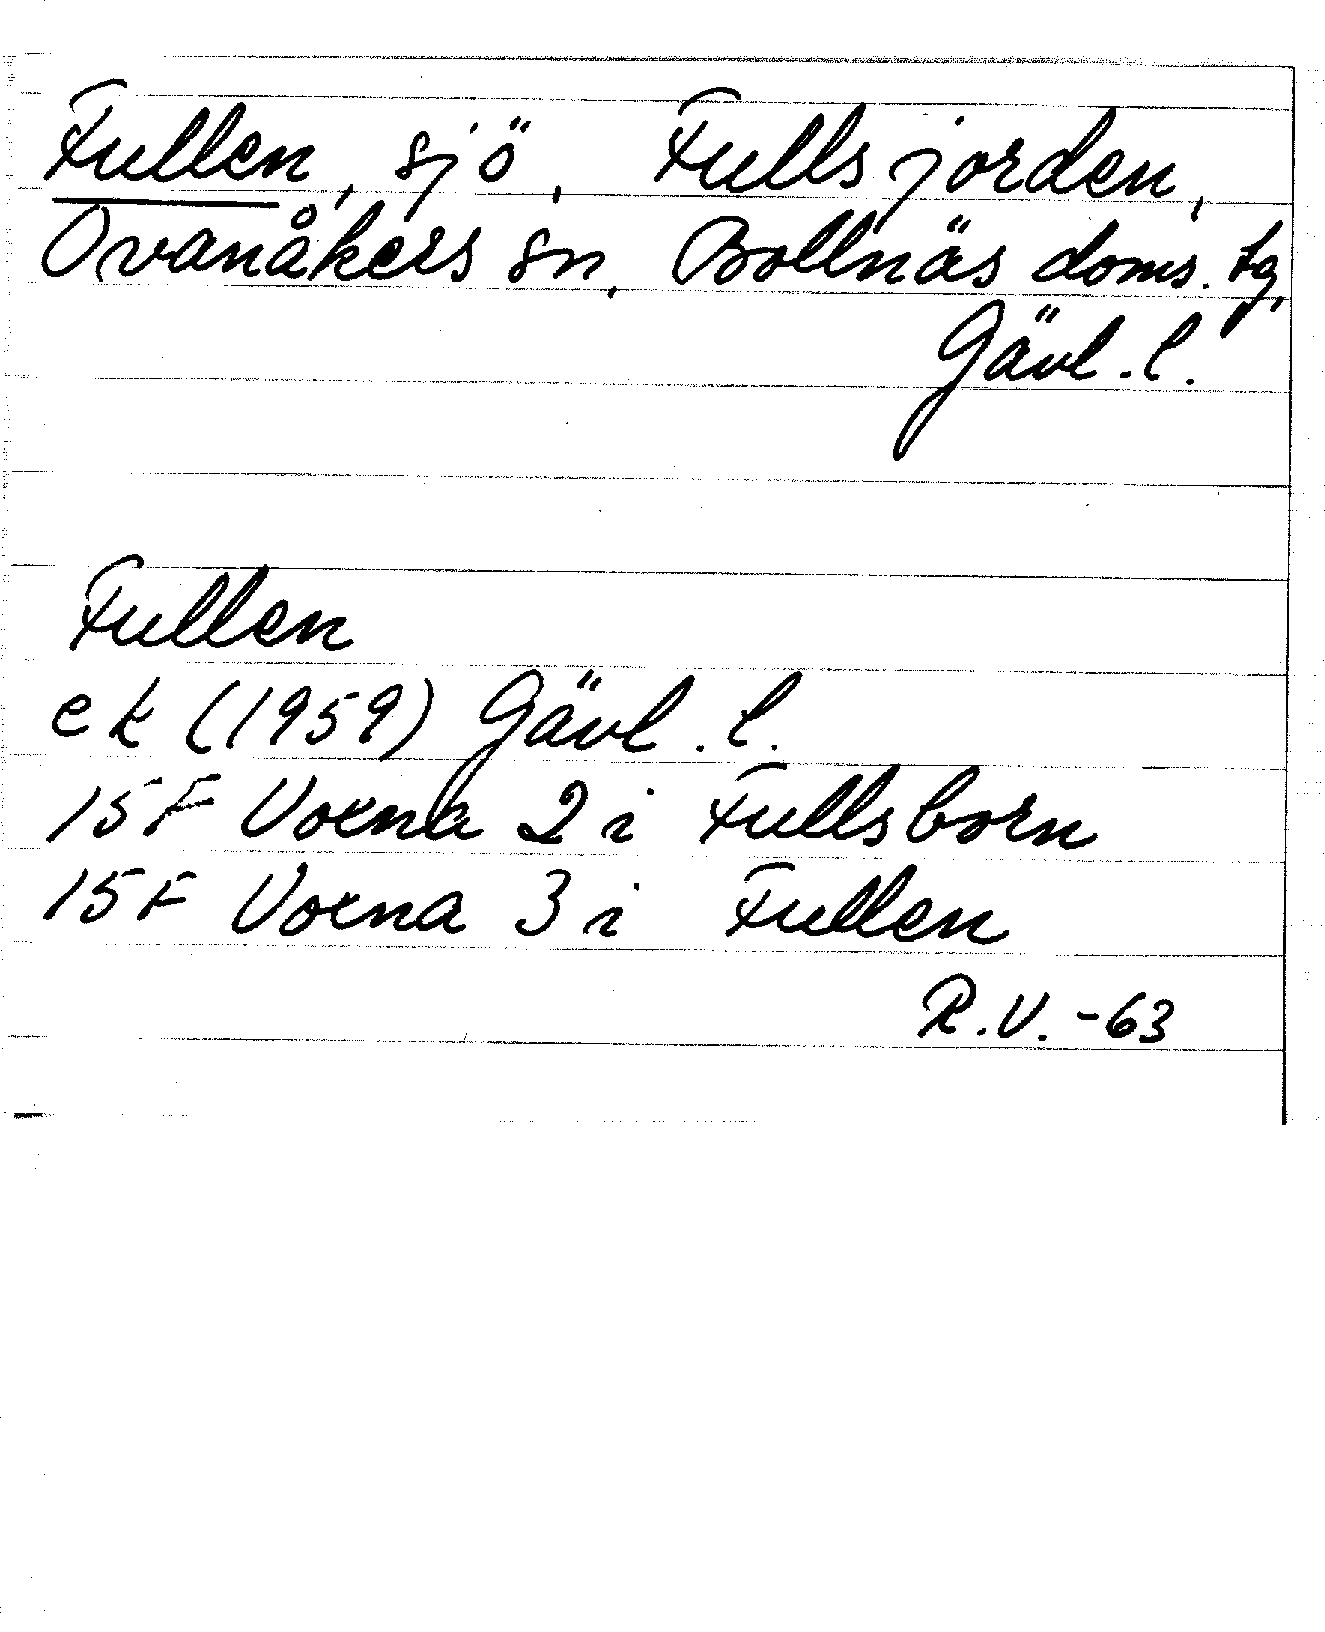 Fullen, sjö, Fullsjorden,
Ovanåkers sn, Bollnäs doms. tg,
Gävl. l.
Fullen
ek (1959) Gävl. l.
15F Voxna 2 i Fullsborn
15F Voxna 3 i Fullen
R.V. -63